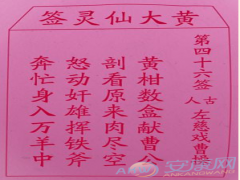 黄大仙灵签
第四十六签
古人
左慈戏曹
黄柑数盒献曹公
剖看原来肉尽空
怒动奸雄挥铁斧
奔忙身入万羊中